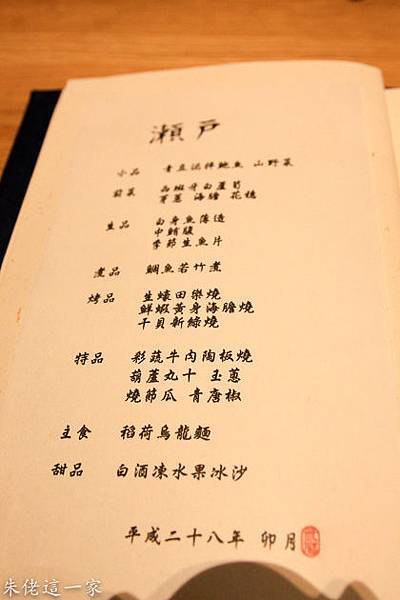 瀨戶
小品 青豆泥拌鮑魚 山野菜
前菜 西班牙白蘆筍
芽蔥 海膽 花穗
生品 白身魚薄造
中鮪腹
季節生魚片
煮品 鯛魚若竹煮
烤品 生蠔田樂燒
鮮蝦黃身海膽燒
干貝新綠燒
特品 彩蔬牛肉陶板燒
葫蘆丸十 玉蔥
燒節瓜 青唐椒
主食 稻荷烏龍麵
甜品 白酒凍水果冰沙
平成二十八年 卯月
朱佬這一家